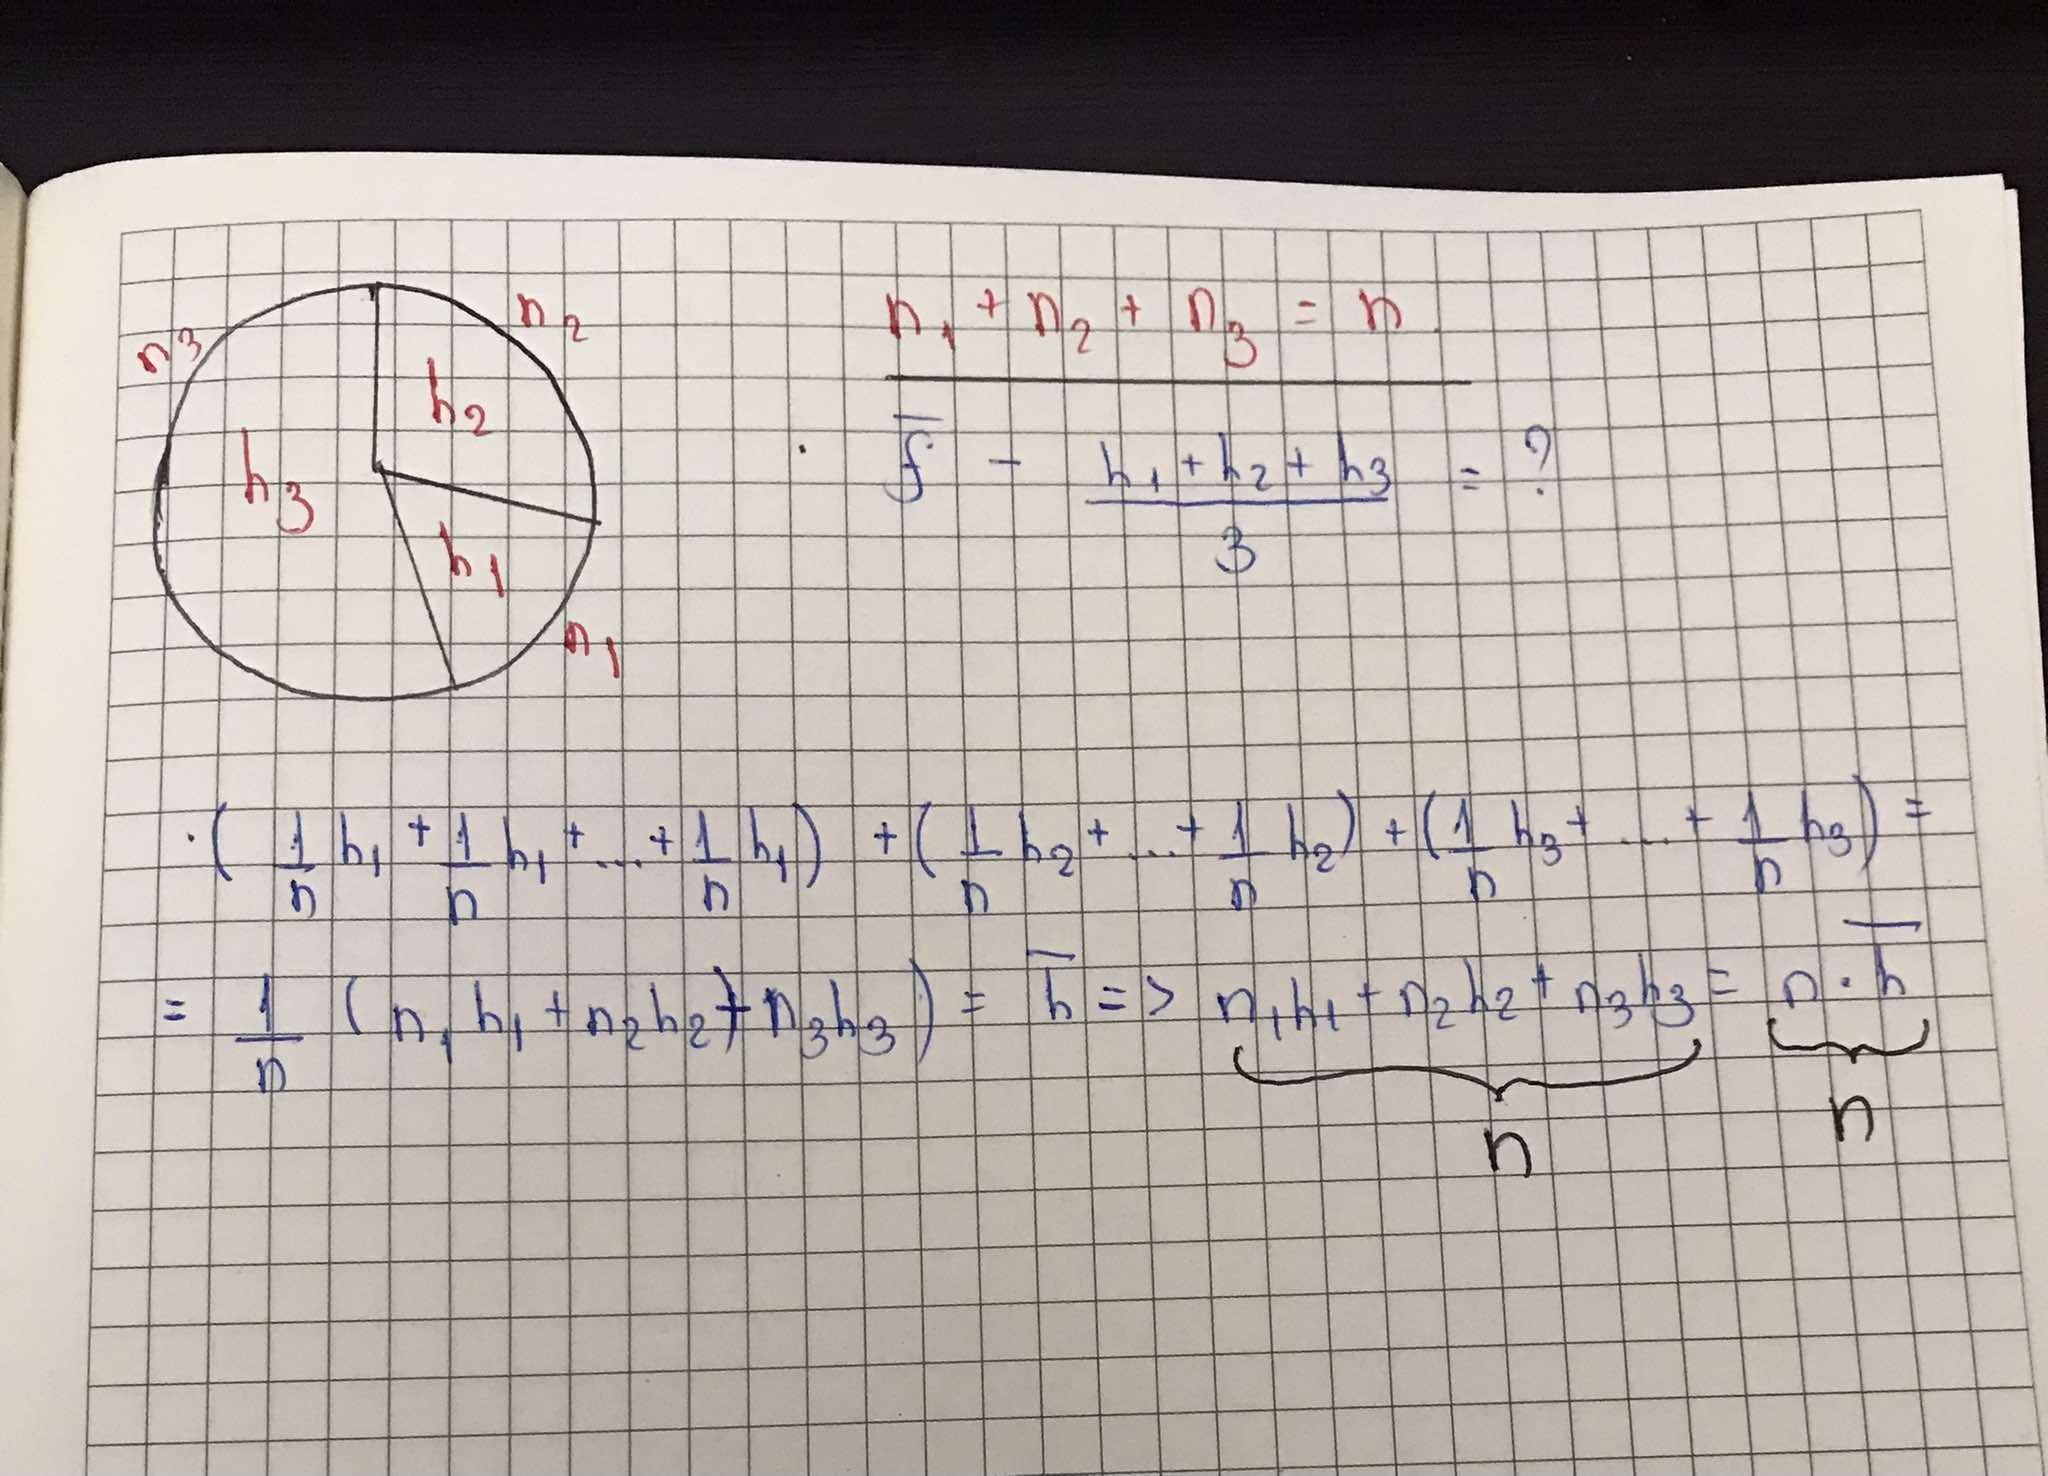 n₃
n₂
h₂
h₃
h₁
n₁
n₁ + n₂ + n₃ = n
f̅ - (h₁ + h₂ + h₃)/3 = ?
· (1/n h₁ + 1/n h₁ + ... + 1/n h₁) + (1/n h₂ + ... + 1/n h₂) + (1/n h₃ + ... + 1/n h₃) =
= 1/n (n₁h₁ + n₂h₂ + n₃h₃) = h̅ => n₁h₁ + n₂h₂ + n₃h₃ = n · h̅
n n